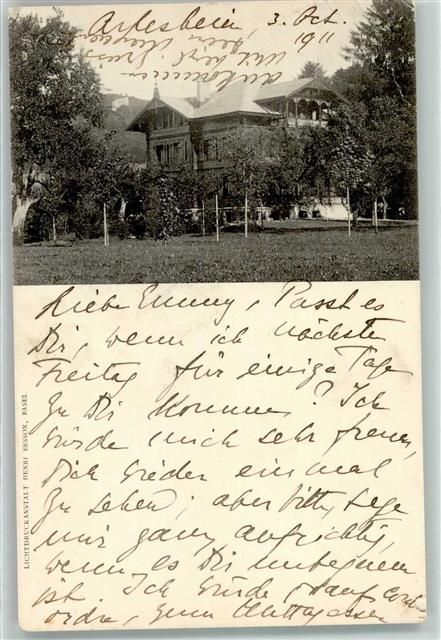 Arlesheim, 3. Oct.
1911
ankommen
Liebe Emmy, Passt es
Dir, wenn ich nächste
Freitag für einige Tage
zu Dir komme? Ich
würde mich sehr freuen,
Dich wieder einmal
zu sehen; aber bitte, sage
mir ganz aufrichtig,
wenn es Dir unbequem
ist. Ich würde,
ordre, zum Mittagessen
LICHTDRUCKANSTALT HENRI BESSON, BASEL